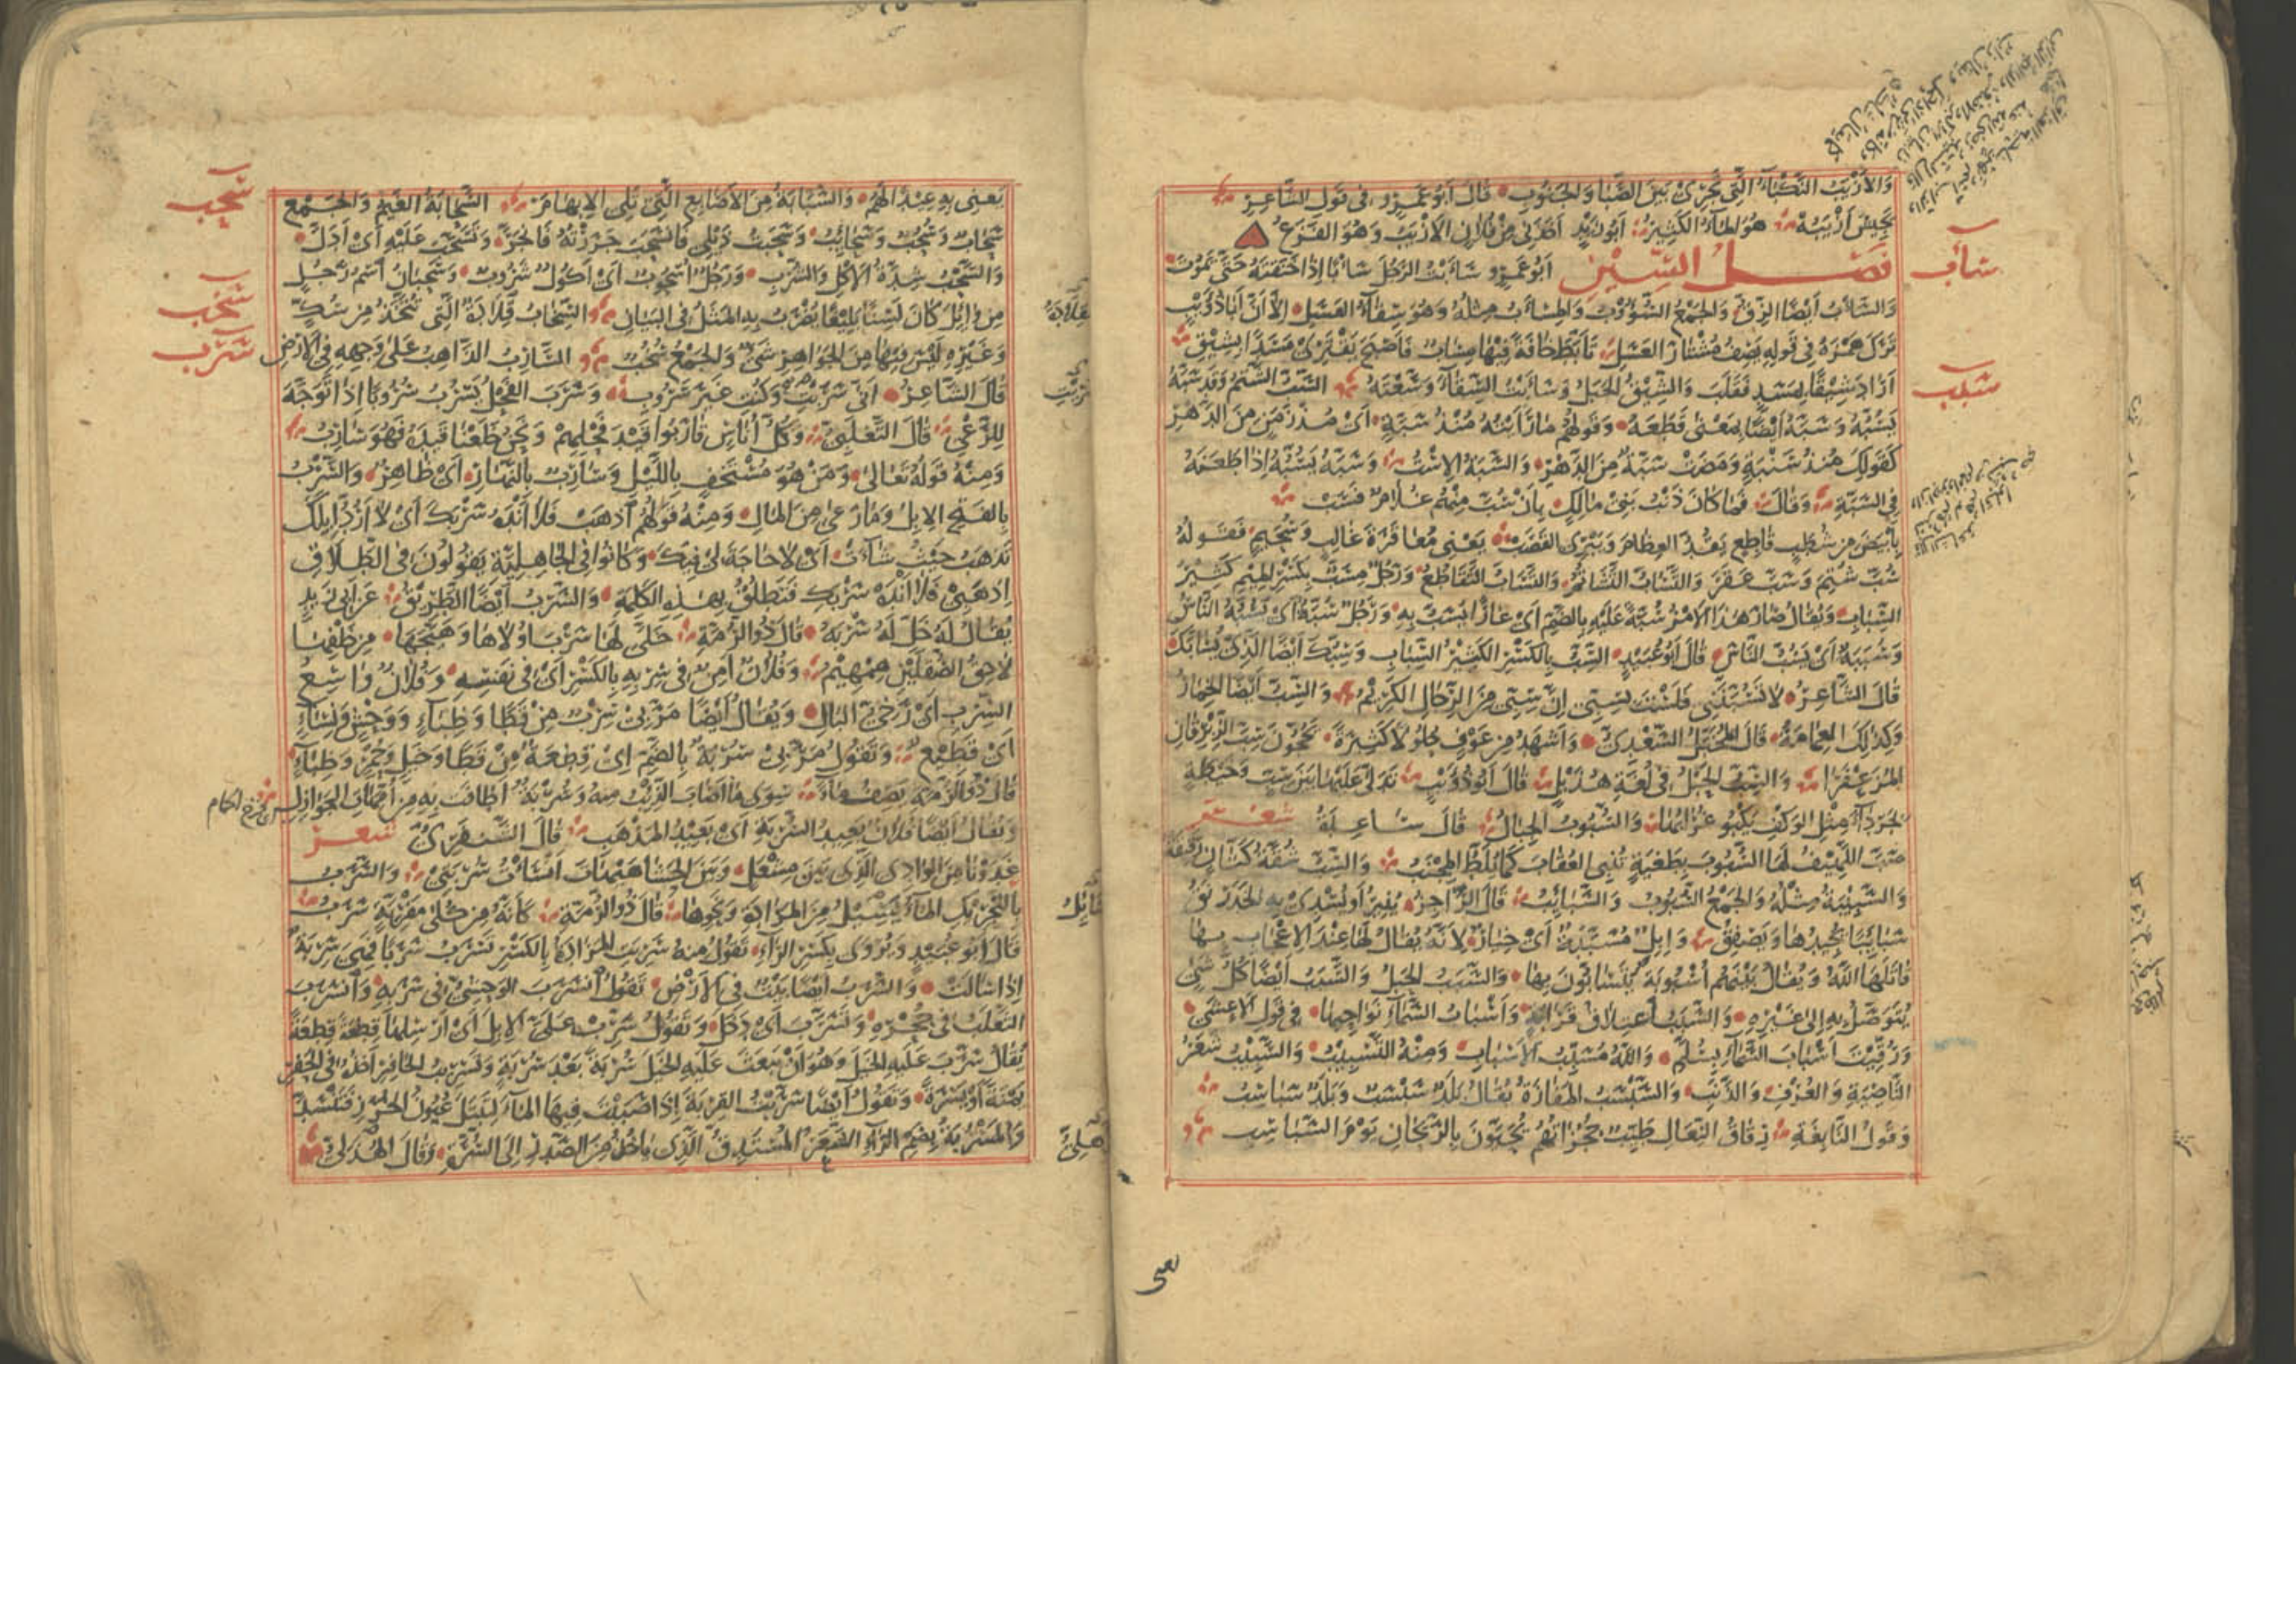 وَالأَزْيَبُ النَّكْبَاءُ الَّتِي تَجْرِي بَيْنَ الصَّبَا وَالجَنُوبِ قَالَ أَبُو عَمْرٍو فِي قَوْلِ الشَّاعِرِ
بِجَيْشِ أَزْيَبِهْ هُوَ المَاءُ الكَثِيرُ أَبُو زَيْدٍ أَخَذَنِي مِنْ فُلَانٍ الأَزْيَبُ وَهُوَ الفَزَعُ
فَصْلُ السِّين أَبُو عَمْرٍو سَأَبْتُ الرَّجُلَ سَأْبًا إِذَا خَنَقْتَهُ حَتَّى يَمُوتَ
سأب
وَالسَّأْبُ أَيْضًا الزِّقُّ وَالجَمْعُ السُّؤُوبُ وَالمِسْأَبُ مِثْلُهُ وَهُوَ سِقَاءُ العَسَلِ إِلَّا أَنَّ أَبَا ذُؤَيْبٍ
تَرَكَ هَمْزَهُ فِي قَوْلِهِ يَصِفُ مُشْتَارَ العَسَلِ تَأَبَّطَ خَافَةً فِيهَا مِسَابٌ فَأَصْبَحَ يَقْتَرِي مَسَدًا بِشِيقِ
أَرَادَ شِيقًا بِمَسَدٍ فَقَلَبَ وَالشِّيقُ الجَبَلُ وَسَأَبْتُ السِّقَاءَ وَسَّعْتُهُ السَّبُّ الشَّتْمُ وَقَدْ سَبَّهُ
سبب
يَسُبُّهُ وَسَبَّهُ أَيْضًا بِمَعْنَى قَطَعَهُ وَقَوْلُهُمْ مَا رَأَيْتُهُ مُنْذُ سَبَّةٍ أَيْ مُذْ زَمَنٍ مِنَ الدَّهْرِ
كَقَوْلِكَ مُنْذُ سَنْبَةٍ وَمَضَتْ سَبَّةٌ مِنَ الدَّهْرِ وَالسَّبَّةُ الإسْتُ وَسَبَّهُ يَسُبُّهُ إِذَا طَعَنَهُ
فِي السَّبَّةِ وَقَالَ فَمَا كَانَ ذَنْبُ بَنِي مَالِكٍ بِأَنْ سُبَّ مِنْهُمْ غُلَامٌ فَسَبْ
بِأَبْيَضَ مِنْ شُطَبٍ قَاطِعٍ يَقُدُّ العِظَامَ وَيَبْرِي القَصَبْ يَعْنِي مُعَاقَرَةَ غَالِبٍ وَسُحَيْمٍ فَقَوْلُهُ
سُبَّ شُتِمَ وَسَبَّ عَقَرَ وَالتَّسَابُّ التَّشَاتُمُ وَالتَّسَابُّ التَّقَاطُعُ وَرَجُلٌ مِسَبٌّ بِكَسْرِ المِيمِ كَثِيرُ
السِّبَابِ وَيُقَالُ صَارَ هَذَا الأَمْرُ سُبَّةً عَلَيْهِ بِالضَّمِّ أَيْ عَارًا يُسَبُّ بِهِ وَرَجُلٌ سُبَّةٌ أَيْ يَسُبُّهُ النَّاسُ
وَسُبَبَةٌ أَيْ يَسُبُّ النَّاسَ قَالَ أَبُو عُبَيْدٍ السِّبُّ بِالكَسْرِ الكَثِيرُ السِّبَابِ وَسِبُّكَ أَيْضًا الَّذِي يُسَابُّكَ
قَالَ الشَّاعِرُ لَا تَسُبَّنَّنِي فَلَسْتَ بِسِبِّي إِنَّ سِبِّي مِنَ الرِّجَالِ الكَرِيمُ وَالسِّبُّ أَيْضًا الخِمَارُ
وَكَذَلِكَ العِمَامَةُ قَالَ المُخَبَّلُ السَّعْدِيُّ وَأَشْهَدُ مِنْ عَوْفٍ حُلُولًا كَثِيرَةً يَحُجُّونَ سِبَّ الزِّبْرِقَانِ
المُزَعْفَرَا وَالسِّبُّ الحَبْلُ فِي لُغَةِ هُذَيْلٍ قَالَ أَبُو ذُؤَيْبٍ تَدَلَّى عَلَيْهَا بَيْنَ سِبٍّ وَخَيْطَةٍ
بِجَرْدَاءَ مِثْلِ الوَكْفِ يَكْبُو غُرَابُهَا وَالسُّبُوبُ الحِبَالُ قَالَ سَاعِدَةُ شعر
صَبَّ اللَّهِيفُ لَهَا السُّبُوبَ بِطَغْيَةٍ تُنْبِي العُقَابَ كَمَا يُلَطُّ المِجْنَبُ وَالسِّبُّ شُقَّةُ كَتَّانٍ رَقِيقَةٌ
وَالسَّبِيبَةُ مِثْلُهُ وَالجَمْعُ السُّبُوبُ وَالسَّبَائِبُ قَالَ الرَّاجِزُ يُنِيرُ أَوْ يُسْدِي بِهِ الخَدَرْنَقُ
سَبَائِبًا يُجِيدُهَا وَيَصْفِقُ وَإِبِلٌ مُسَبَّبَةٌ أَيْ خِيَارٌ لِأَنَّهُ يُقَالُ لَهَا عِنْدَ الإِعْجَابِ بِهَا
قَاتَلَهَا اللَّهُ وَيُقَالُ بَيْنَهُمْ أُسْبُوبَةٌ يَتَسَابُّونَ بِهَا وَالسَّبَبُ الحَبْلُ وَالسَّبَبُ أَيْضًا كُلُّ شَيْءٍ
يُتَوَصَّلُ بِهِ إِلَى غَيْرِهِ وَالسَّبَبُ اعْتِلَاقُ قَرَابَةٍ وَأَسْبَابُ السَّمَاءِ نَوَاحِيهَا فِي قَوْلِ الأَعْشَى
وَرُقِّيتَ أَسْبَابَ السَّمَاءِ بِسُلَّمِ وَاللَّهُ مُسَبِّبُ الأَسْبَابِ وَمِنْهُ التَّسْبِيبُ وَالسَّبِيبُ شَعَرُ
النَّاصِيَةِ وَالعُرْفِ وَالذَّنَبِ وَالسَّبْسَبُ المَفَازَةُ يُقَالُ بَلَدٌ سَبْسَبٌ وَبَلَدٌ سَبَاسِبُ
وَقَوْلُ النَّابِغَةِ رِقَاقُ النِّعَالِ طَيِّبٌ حُجُزَاتُهُمْ يُحَيَّوْنَ بِالرَّيْحَانِ يَوْمَ السَّبَاسِبِ
يعنى
يَعْنِي بِهِ عِيدًا لَهُمْ وَالسَّبَّابَةُ مِنَ الأَصَابِعِ الَّتِي تَلِي الإِبْهَامَ السَّحَابَةُ الغَيْمُ وَالجَمْعُ
سحب
سَحَابٌ وَسُحُبٌ وَسَحَائِبُ وَسَحَبْتُ ذَيْلِي فَانْسَحَبَ جَرَرْتُهُ فَانْجَرَّ وَتَسَحَّبَ عَلَيْهِ أَيْ أَدَلَّ
وَالسَّحْبُ شِدَّةُ الأَكْلِ وَالشُّرْبِ وَرَجُلٌ أُسْحُوبٌ أَيْ أَكُولٌ شَرُوبٌ وَسَحْبَانُ اسْمُ رَجُلٍ
مِنْ وَائِلٍ كَانَ لَسِنًا بَلِيغًا يُضْرَبُ بِهِ المَثَلُ فِي البَيَانِ السِّخَابُ قِلَادَةٌ الَّتِي تُتَّخَذُ مِنْ سُكٍّ
سخب
وَغَيْرِهِ لَيْسَ فِيهَا مِنَ الجَوَاهِرِ شَيْءٌ وَالجَمْعُ سُخُبٌ السَّارِبُ الذَّاهِبُ عَلَى وَجْهِهِ فِي الأَرْضِ
سرب
قَالَ الشَّاعِرُ أَنَّى سَرَبْتِ وَكُنْتِ غَيْرَ سَرُوبِ وَسَرَبَ الفَحْلُ يَسْرُبُ سُرُوبًا إِذَا تَوَجَّهَ
لِلرَّعْيِ قَالَ التَّغْلَبِيُّ وَكُلُّ أُنَاسٍ قَارَبُوا قَيْدَ فَحْلِهِمْ وَنَحْنُ خَلَعْنَا قَيْدَهُ فَهُوَ سَارِبُ
وَمِنْهُ قَوْلُهُ تَعَالَى وَمَنْ هُوَ مُسْتَخْفٍ بِاللَّيْلِ وَسَارِبٌ بِالنَّهَارِ أَيْ ظَاهِرٌ وَالسَّرْبُ
بِالفَتْحِ الإِبِلُ وَمَا رَعَى مِنَ المَالِ وَمِنْهُ قَوْلُهُمْ اذْهَبْ فَلَا أَنْدَهُ سَرْبَكَ أَيْ لَا أَرُدُّ إِبِلَكَ
تَذْهَبُ حَيْثُ شَاءَتْ أَيْ لَا حَاجَةَ لِي فِيكَ وَكَانُوا فِي الجَاهِلِيَّةِ يَقُولُونَ فِي الطَّلَاقِ
اِذْهَبِي فَلَا أَنْدَهُ سَرْبَكِ فَتَطْلُقُ بِهَذِهِ الكَلِمَةِ وَالسَّرْبُ أَيْضًا الطَّرِيقُ عَنْ أَبِي زَيْدٍ
يُقَالُ لَهُ خَلِّ لَهُ سَرْبَهُ قَالَ ذُو الرُّمَّةِ خَلَّى لَهَا سَرْبَ أُولَاهَا وَهَيَّجَهَا مِنْ خَلْفِهَا
لَاحِقُ الصُّقْلَيْنِ هِمْهِيمُ وَفُلَانٌ آمِنٌ فِي سِرْبِهِ بِالكَسْرِ أَيْ فِي نَفْسِهِ وَفُلَانٌ وَاسِعُ
السِّرْبِ أَيْ رَخِيُّ البَالِ وَيُقَالُ أَيْضًا مَرَّ بِي سِرْبٌ مِنْ قَطًا وَظِبَاءٍ وَوَحْشٍ وَنِسَاءٍ
أَيْ قَطِيعٌ وَتَقُولُ مَرَّ بِي سُرْبَةٌ بِالضَّمِّ أَيْ قِطْعَةٌ مِنْ قَطًا وَخَيْلٍ وَحُمُرٍ وَظِبَاءٍ
قَالَ ذُو الرُّمَّةِ يَصِفُ مَاءً سِوَى مَا أَصَابَ الذِّئْبُ مِنْهُ وَسُرْبَةٌ أَطَافَتْ بِهِ مِنْ أُمَّهَاتِ الجَوَازِلِ
وَيُقَالُ أَيْضًا فُلَانٌ بَعِيدُ السُّرْبَةِ أَيْ بَعِيدُ المَذْهَبِ قَالَ الشَّنْفَرَى شعر
غَدَوْنَا مِنَ الوَادِي الَّذِي بَيْنَ مِشْعَلٍ وَبَيْنَ الحَشَا هَيْهَاتَ أَنْسَأْتُ سُرْبَتِي وَالسَّرَبُ
بِالتَّحْرِيكِ المَاءُ يَسِيلُ مِنَ المَزَادَةِ وَنَحْوِهَا قَالَ ذُو الرُّمَّةِ كَأَنَّهُ مِنْ كُلَى مَفْرِيَّةٍ سَرَبُ
قَالَ أَبُو عُبَيْدٍ وَيُرْوَى بِكَسْرِ الرَّاءِ تَقُولُ مِنْهُ سَرِبَتِ المَزَادَةُ بِالكَسْرِ تَسْرَبُ سَرَبًا فَهِيَ سَرِبَةٌ
إِذَا سَالَتْ وَالسَّرَبُ أَيْضًا بَيْتٌ فِي الأَرْضِ تَقُولُ انْسَرَبَ الوَحْشِيُّ فِي سَرَبِهِ وَانْسَرَبَ
الثَّعْلَبُ فِي جُحْرِهِ وَتَسَرَّبَ أَيْ دَخَلَ وَتَقُولُ سَرِّبْ عَلَيَّ الإِبِلَ أَيْ أَرْسِلْهَا قِطْعَةً قِطْعَةً
يُقَالُ سَرَّبَ عَلَيْهِ الخَيْلَ وَهُوَ أَنْ يَبْعَثَ عَلَيْهِ الخَيْلَ سُرْبَةً بَعْدَ سُرْبَةٍ وَتَسْرِيبُ الحَافِرِ أَخْذُهُ فِي الحَفْرِ
يَمْنَةً أَوْ يَسْرَةً وَتَقُولُ أَيْضًا سَرَّبْتُ القِرْبَةَ إِذَا صَبَبْتَ فِيهَا المَاءَ لِتَبْتَلَّ عُيُونُ الخُرَزِ فَتَنْسَدَّ
وَالمَسْرُبَةُ بِضَمِّ الرَّاءِ الشَّعَرُ المُسْتَدِقُّ الَّذِي يَأْخُذُ مِنَ الصَّدْرِ إِلَى السُّرَّةِ وَقَالَ الهُذَلِيُّ